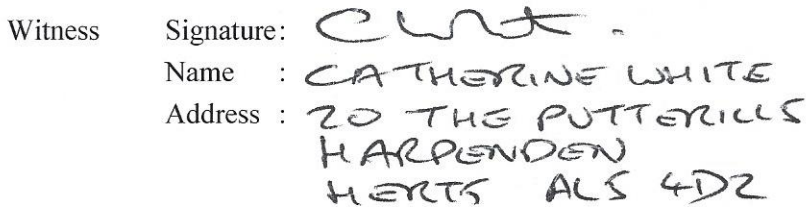 Witness Signature:
Name : CATHERINE WHITE
Address : 20 THE PUTTERILLS
HARPENDEN
HERTS AL5 4DZ